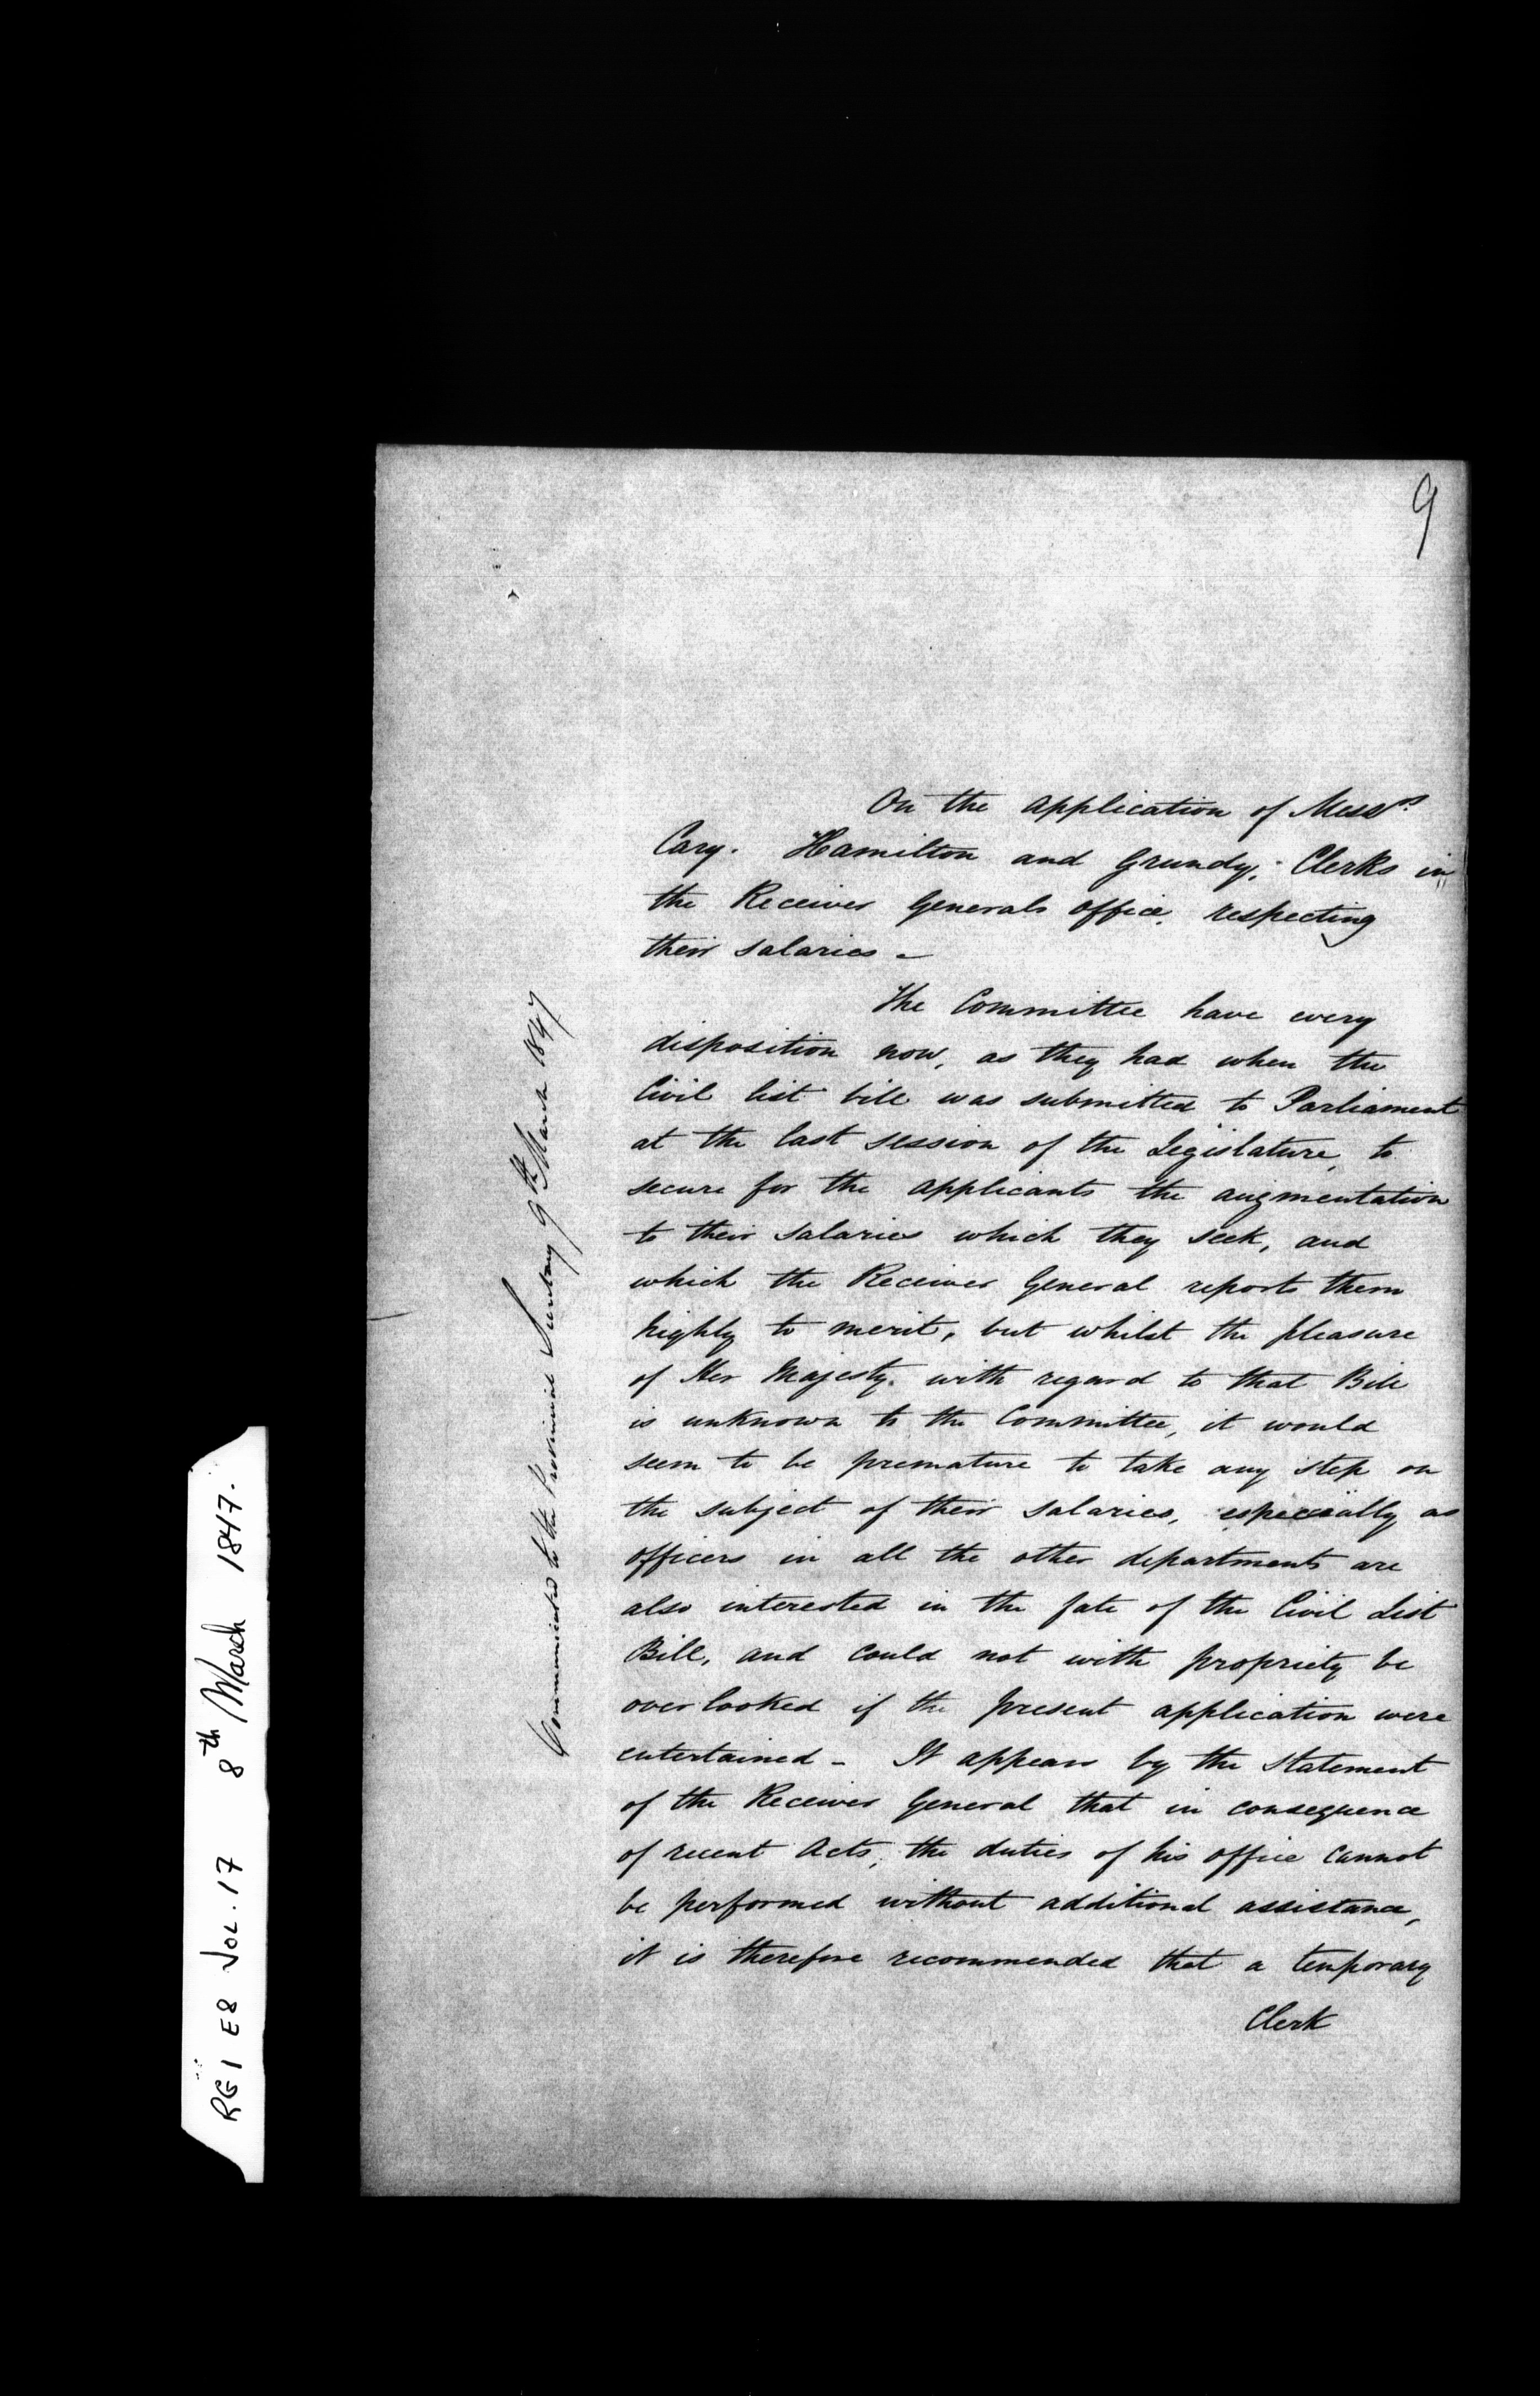 9
On the application of Mess.rs
Cary. Hamilton and Grundy, Clerks in
the Receiver Generals office, respecting
their salaries -
The Committee have every
disposition now, as they had when the
Civil list bill was submitted to Parliament
at the last session of the Legislature, to
secure for the applicants the augmentation
to their salaries which they seek, and
which the Receiver General reports them
highly to merit, but whilst the pleasure
of Her Majesty. with regard to that Bill
is unknown to the Committee, it would
seem to be premature to take any step on
the subject of their salaries, especially as
officers in all the other departments are
also interested in the fate of the Civil List
Bill, and could not with propriety be
overlooked if the present application were
entertained - It appears by the statement
of the Receiver General that in consequence
of recent Acts, the duties of his office cannot
be performed without additional assistance,
it is therefore recommended that a temporary
Clerk
Communicated to the Provincial Secretary 9th March 1847
RG 1 E8 VOL. 17 8th March 1847.